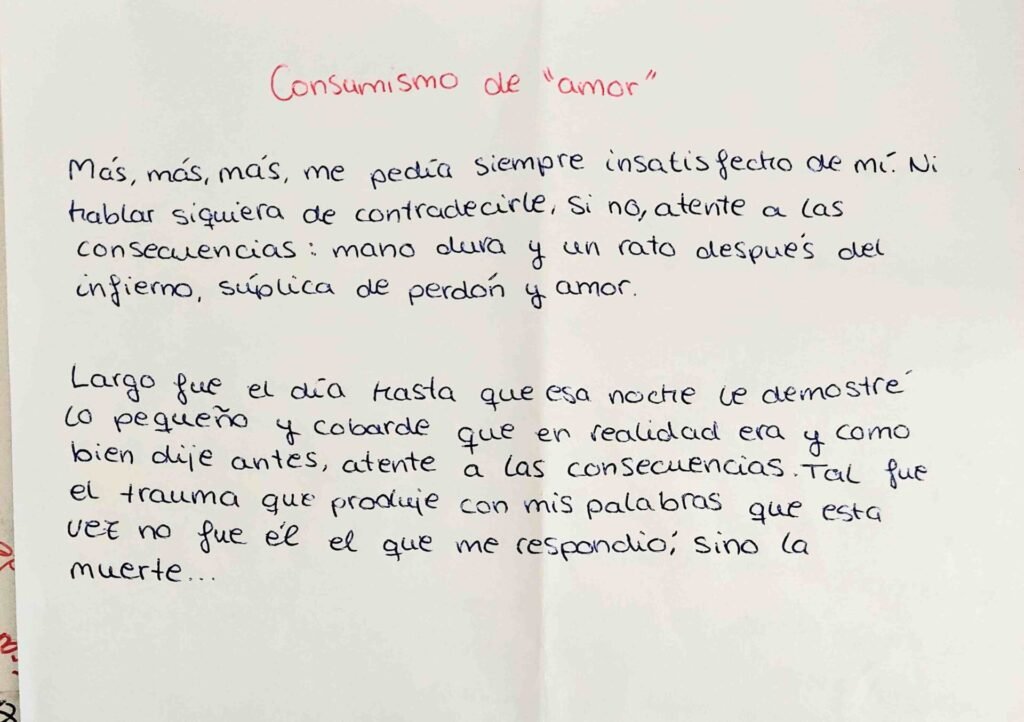 Consumismo de "amor"
Más, más, más, me pedía siempre insatisfecho de mí. Ni
hablar siquiera de contradecirle, si no, atente a las
consecuencias: mano dura y un rato después del
infierno, súplica de perdón y amor.
Largo fue el día hasta que esa noche le demostré
lo pequeño y cobarde que en realidad era y como
bien dije antes, atente a las consecuencias. Tal fue
el trauma que produje con mis palabras que esta
vez no fue él el que me respondió, sino la
muerte...